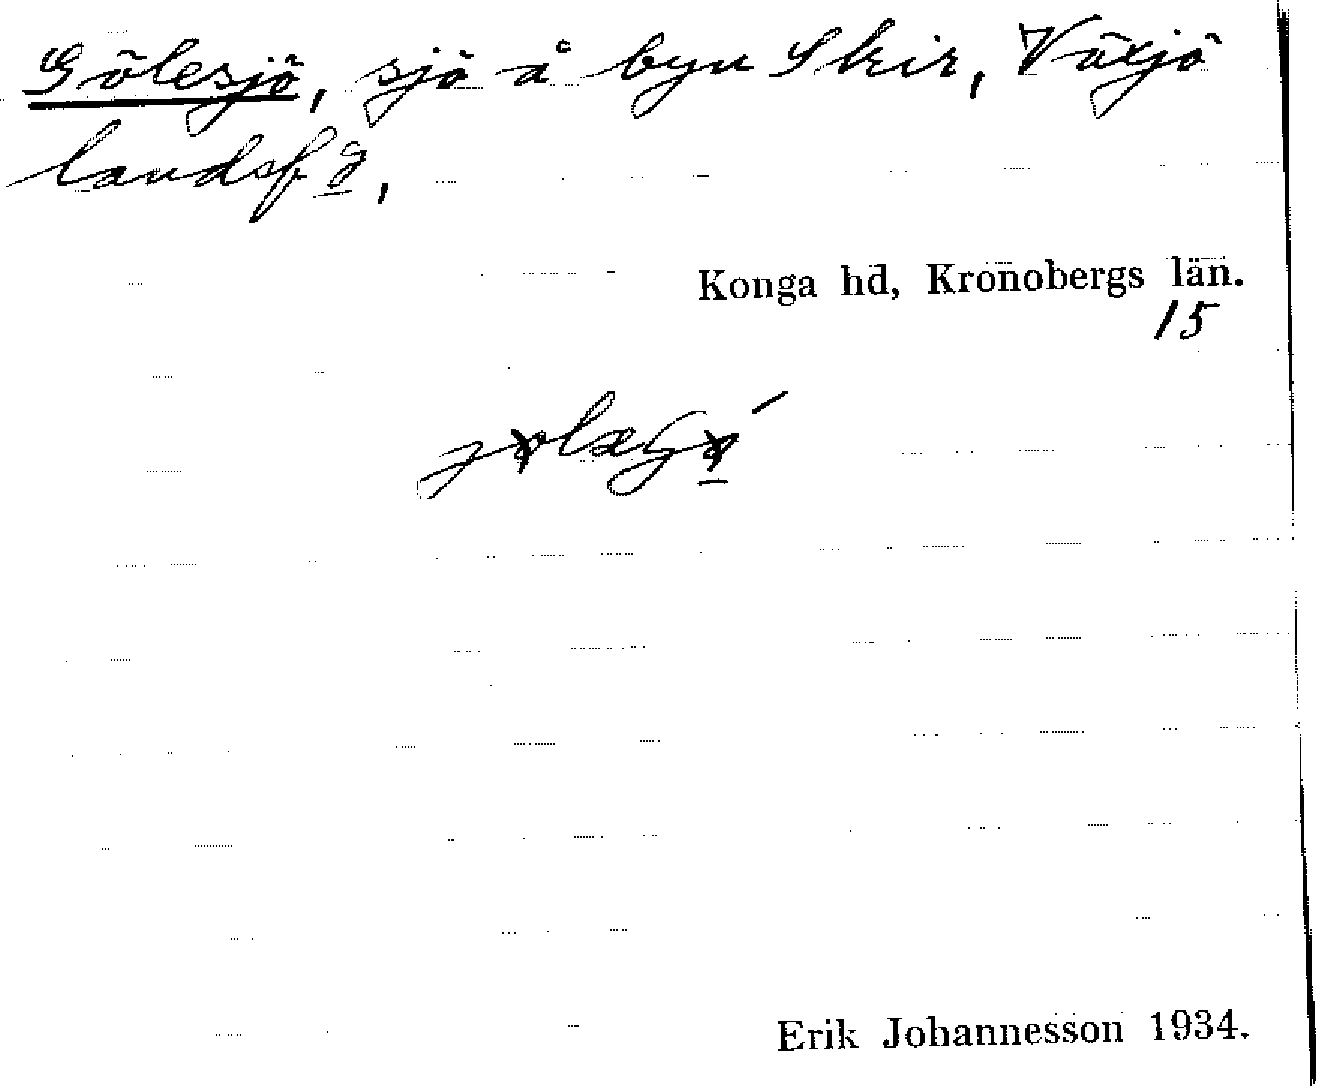 Gölesjö, sjö å byn Skir, Växjö
landsfg,
Konga hd, Kronobergs län.
15
Erik Johannesson 1934.